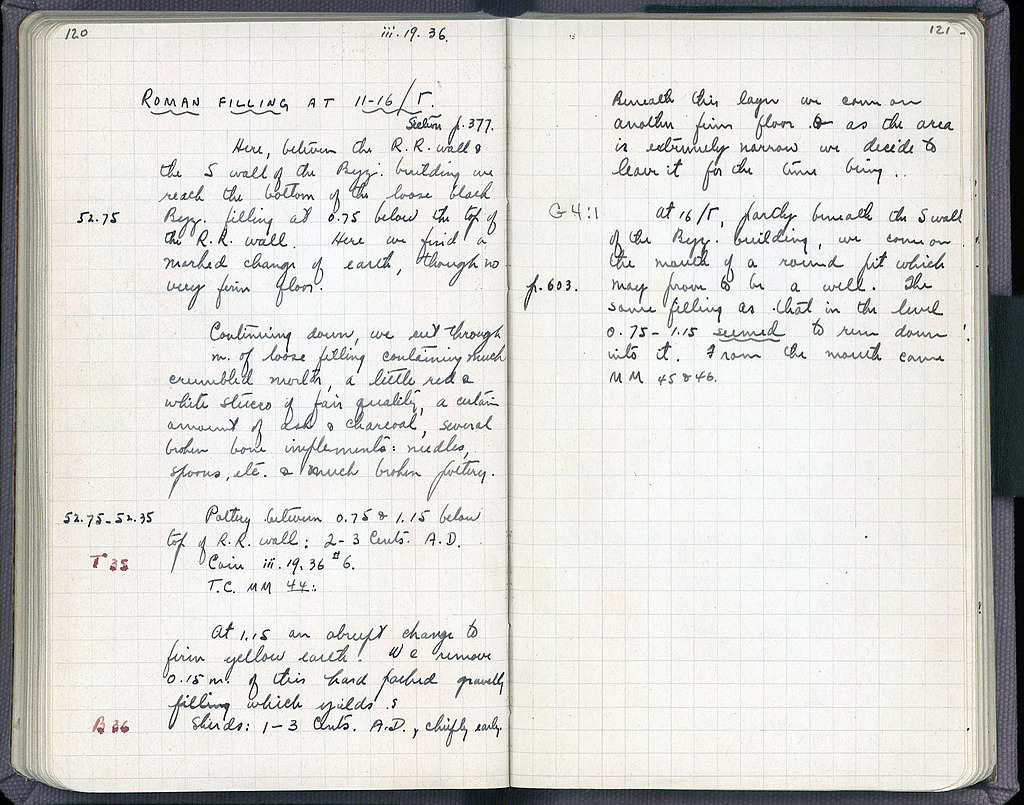 120
iii.19.36.
ROMAN FILLING AT 11-16/Γ.
Section p.377.
Here, between the R.R. wall &
the S wall of the Byz. building we
reach the bottom of the loose black
52.75 Byz. filling at 0.75 below the top of
the R.R. wall. Here we find a
marked change of earth, though no
very firm floor.
Continuing down, we cut through
m. of loose filling containing much
crumbled mortar, a little red &
white stucco of fair quality, a certain
amount of ash & charcoal, several
broken bone implements: needles,
spoons, etc. & much broken pottery.
52.75-52.35 Pottery between 0.75 & 1.15 below
top of R.R. wall: 2-3 Cents. A.D.
Coin iii.19.36 #6.
T.C. MM 44:.
At 1.15 an abrupt change to
firm yellow earth. We remove
0.15 m. of this hard packed gravelly
filling which yields
Sherds: 1-3 Cents. A.D., chiefly early.
121
Beneath this layer we come on
another firm floor. as the area
is extremely narrow we decide to
leave it for the time being..
G 4:1 At 16/Γ, partly beneath the S wall
of the Byz. building, we come on
the mouth of a round pit which
p.603. may prove to be a well. The
same filling as that in the level
0.75-1.15 seemed to run down
into it. From the mouth came
MM 45 & 46.